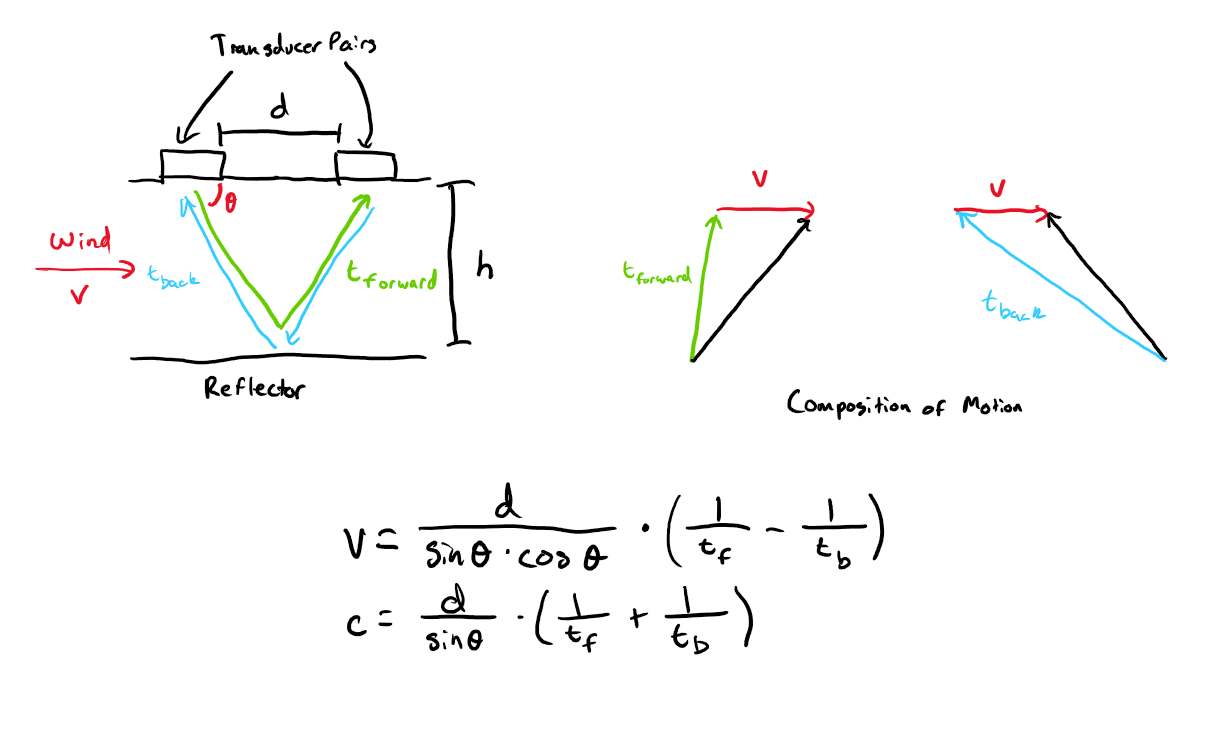 Transducer Pairs
d
θ
wind
v
t_back
t_forward
h
Reflector
v
t_forward
v
t_back
Composition of Motion
v = d / (sin θ · cos θ) · (1/t_f - 1/t_b)
c = d / sin θ · (1/t_f + 1/t_b)